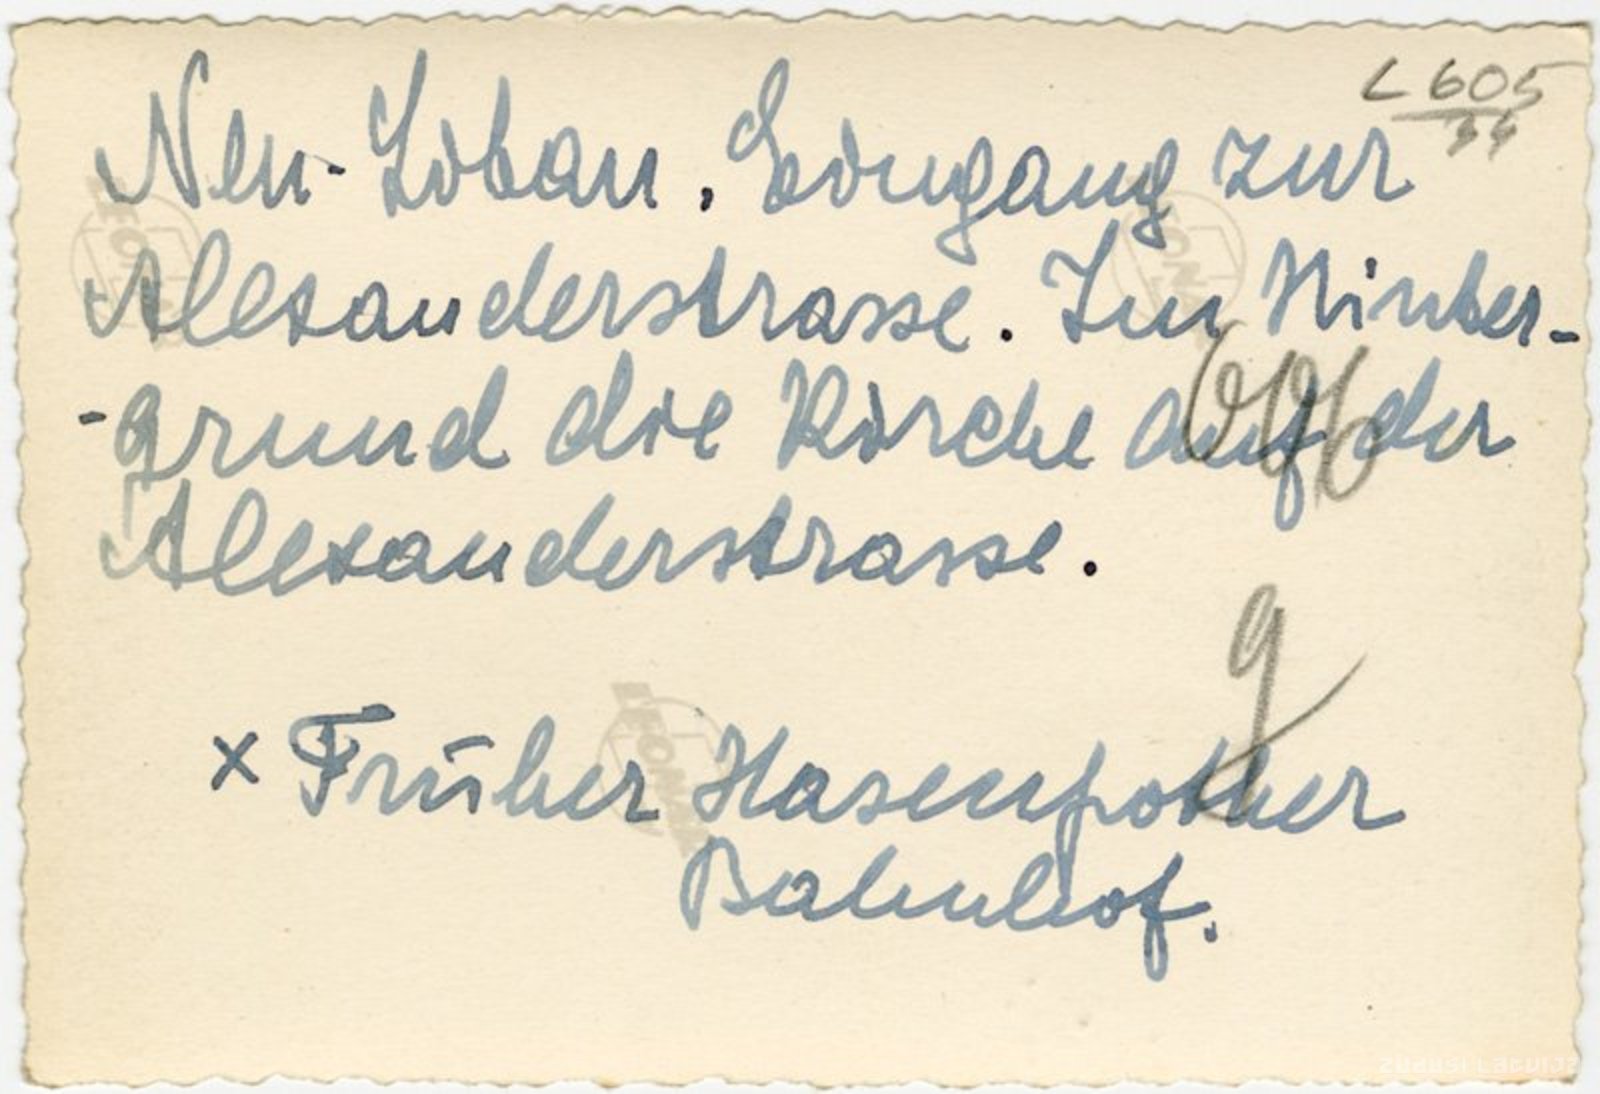 L 605
44
Neu-Libau. Eingang zur
Alexanderstrasse. Im Hinter-
-grund die Kirche auf der
Alexanderstrasse.
696
9
x Früher Hasenpother
Bahnhof.
LEONAR
LEONAR
LEONAR
zudusi latvija